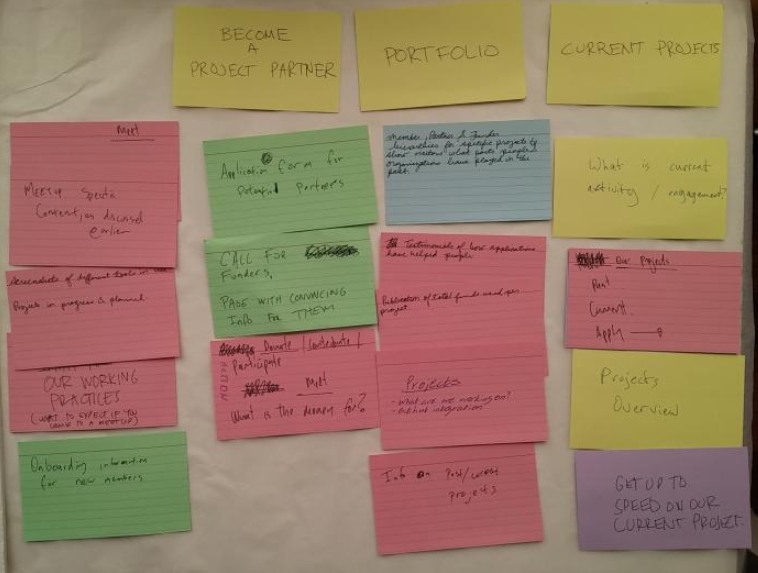 BECOME
A
PROJECT PARTNER
PORTFOLIO
CURRENT PROJECTS
Meet
MEETUP specific
Content, as discussed
earlier
Screenshots of different tools in use
Projects in progress & planned
OUR WORKING
PRACTICES
(WHAT TO EXPECT IF YOU
COME TO A MEETUP)
Onboarding information
for new members
Application form for
Potential Partners
CALL FOR
Funders,
PAGE WITH CONVINCING
Info FOR THEM
Donate / Contribute /
Participate
Meet
What is the money for?
Member, Partner & Funder
hierarchies for specific projects to
show visitors what parts people/
organisations have played in the
past.
Testimonials of how applications
have helped people
Publication of total funds used per
project
Projects
- What are we working on?
- GitHub integration
Info on Past/current
projects
What is current
activity / engagement?
Our Projects
Past
Current
Apply
Projects
Overview
GET UP TO
SPEED ON OUR
CURRENT PROJECT.